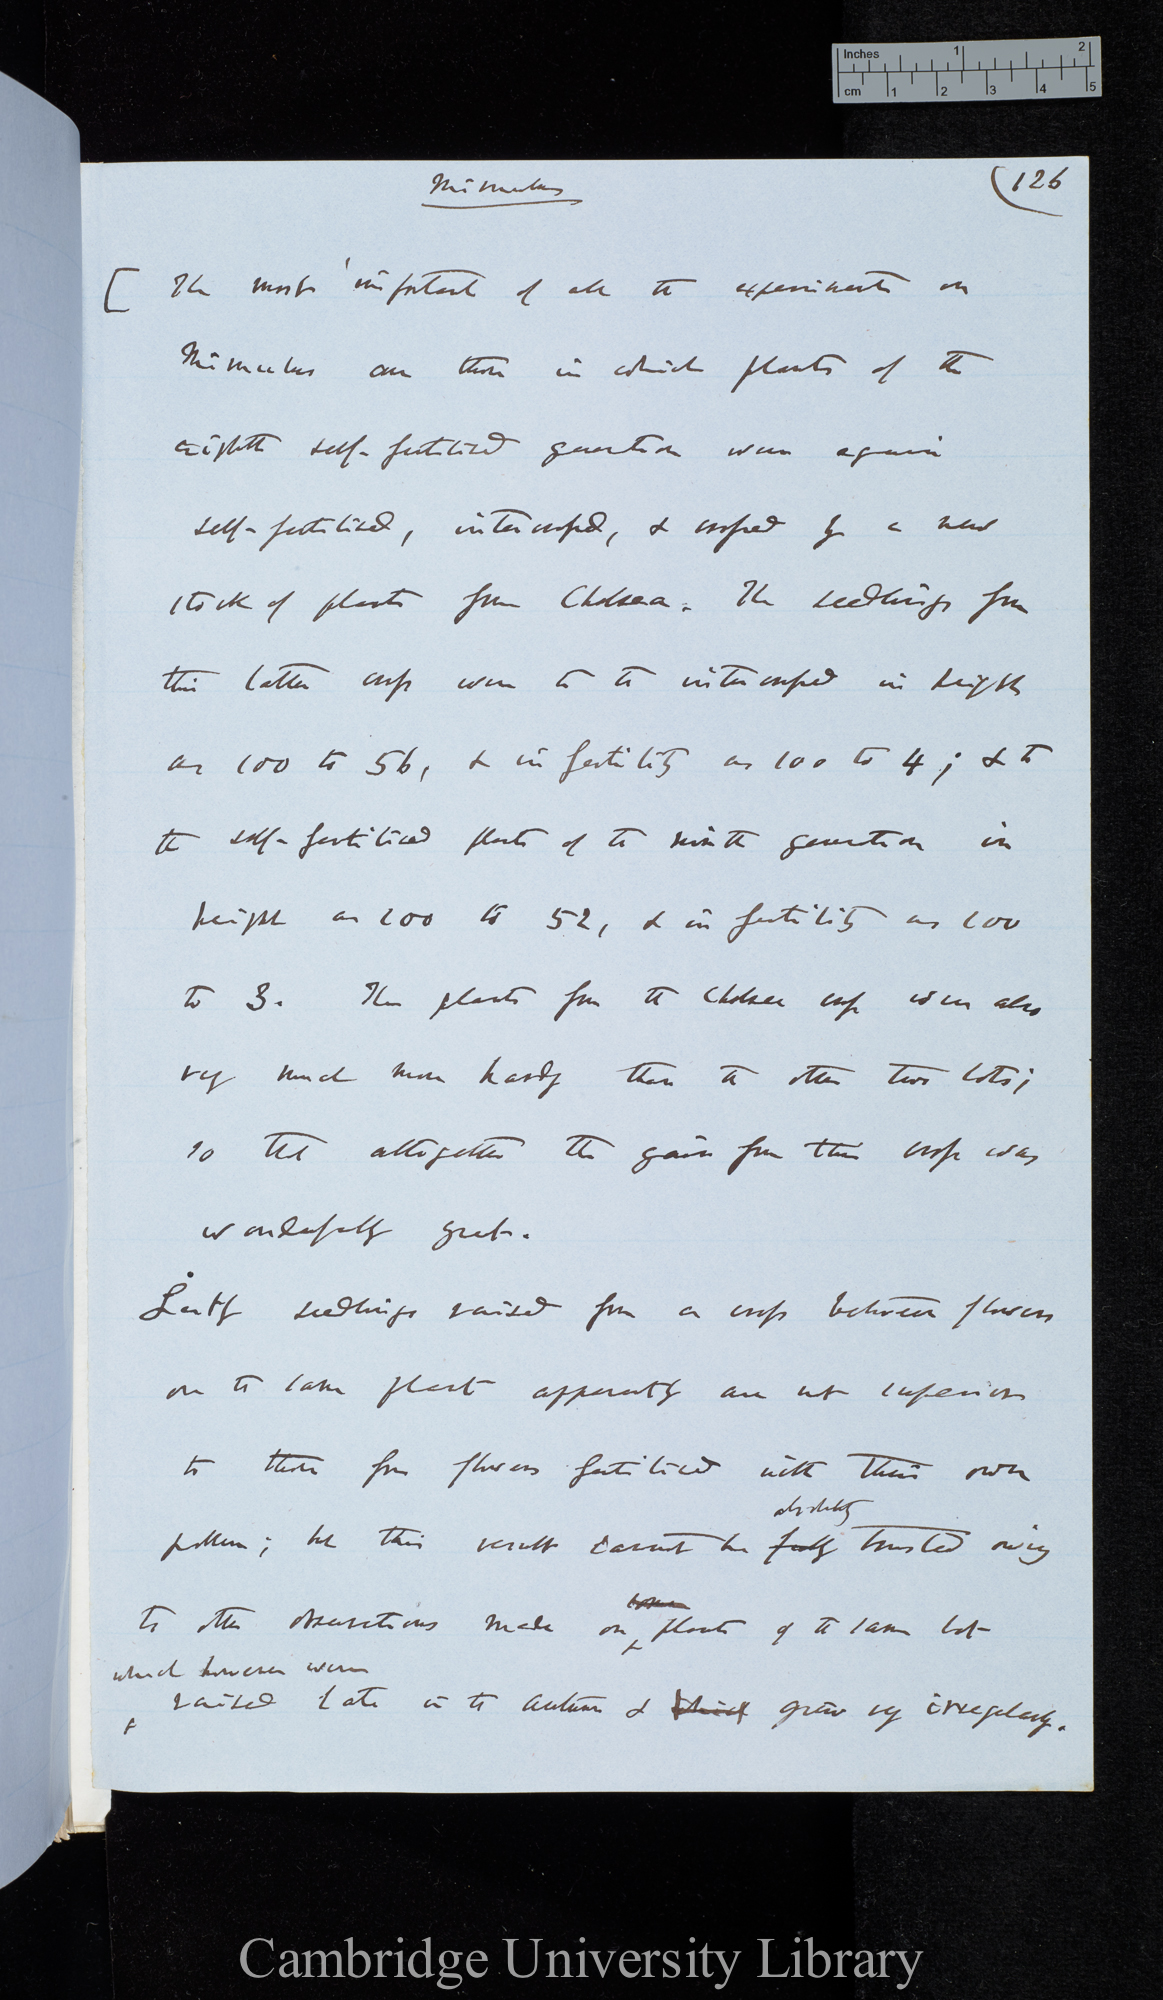 Mimulus
(126
[ The most important of all the experiments on
Mimulus are those in which plants of the
eighth self-fertilised generation were again
self-fertilised, intercrossed, & crossed by a new
stock of plants from Chelsea. The seedlings from
this latter cross were to the intercrossed in height
as 100 to 56, & in fertility as 100 to 4; & to
the self-fertilised plants of the ninth generation in
height as 100 to 52, & in fertility as 100
to 3. The plants from the Chelsea cross were also
very much more hardy than the other two lots;
so that altogether the gain from this cross was
wonderfully great.
Lastly seedlings raised from a cross between flowers
on the same plant apparently are not superior
to those from flowers fertilised with their own
absolutely
pollen; but this result cannot be fully trusted owing
to other observations made on plants of the same lot
which however were
raised late in the autumn & which grew very irregularly.
Inches 1 2
cm 1 2 3 4 5
Cambridge University Library